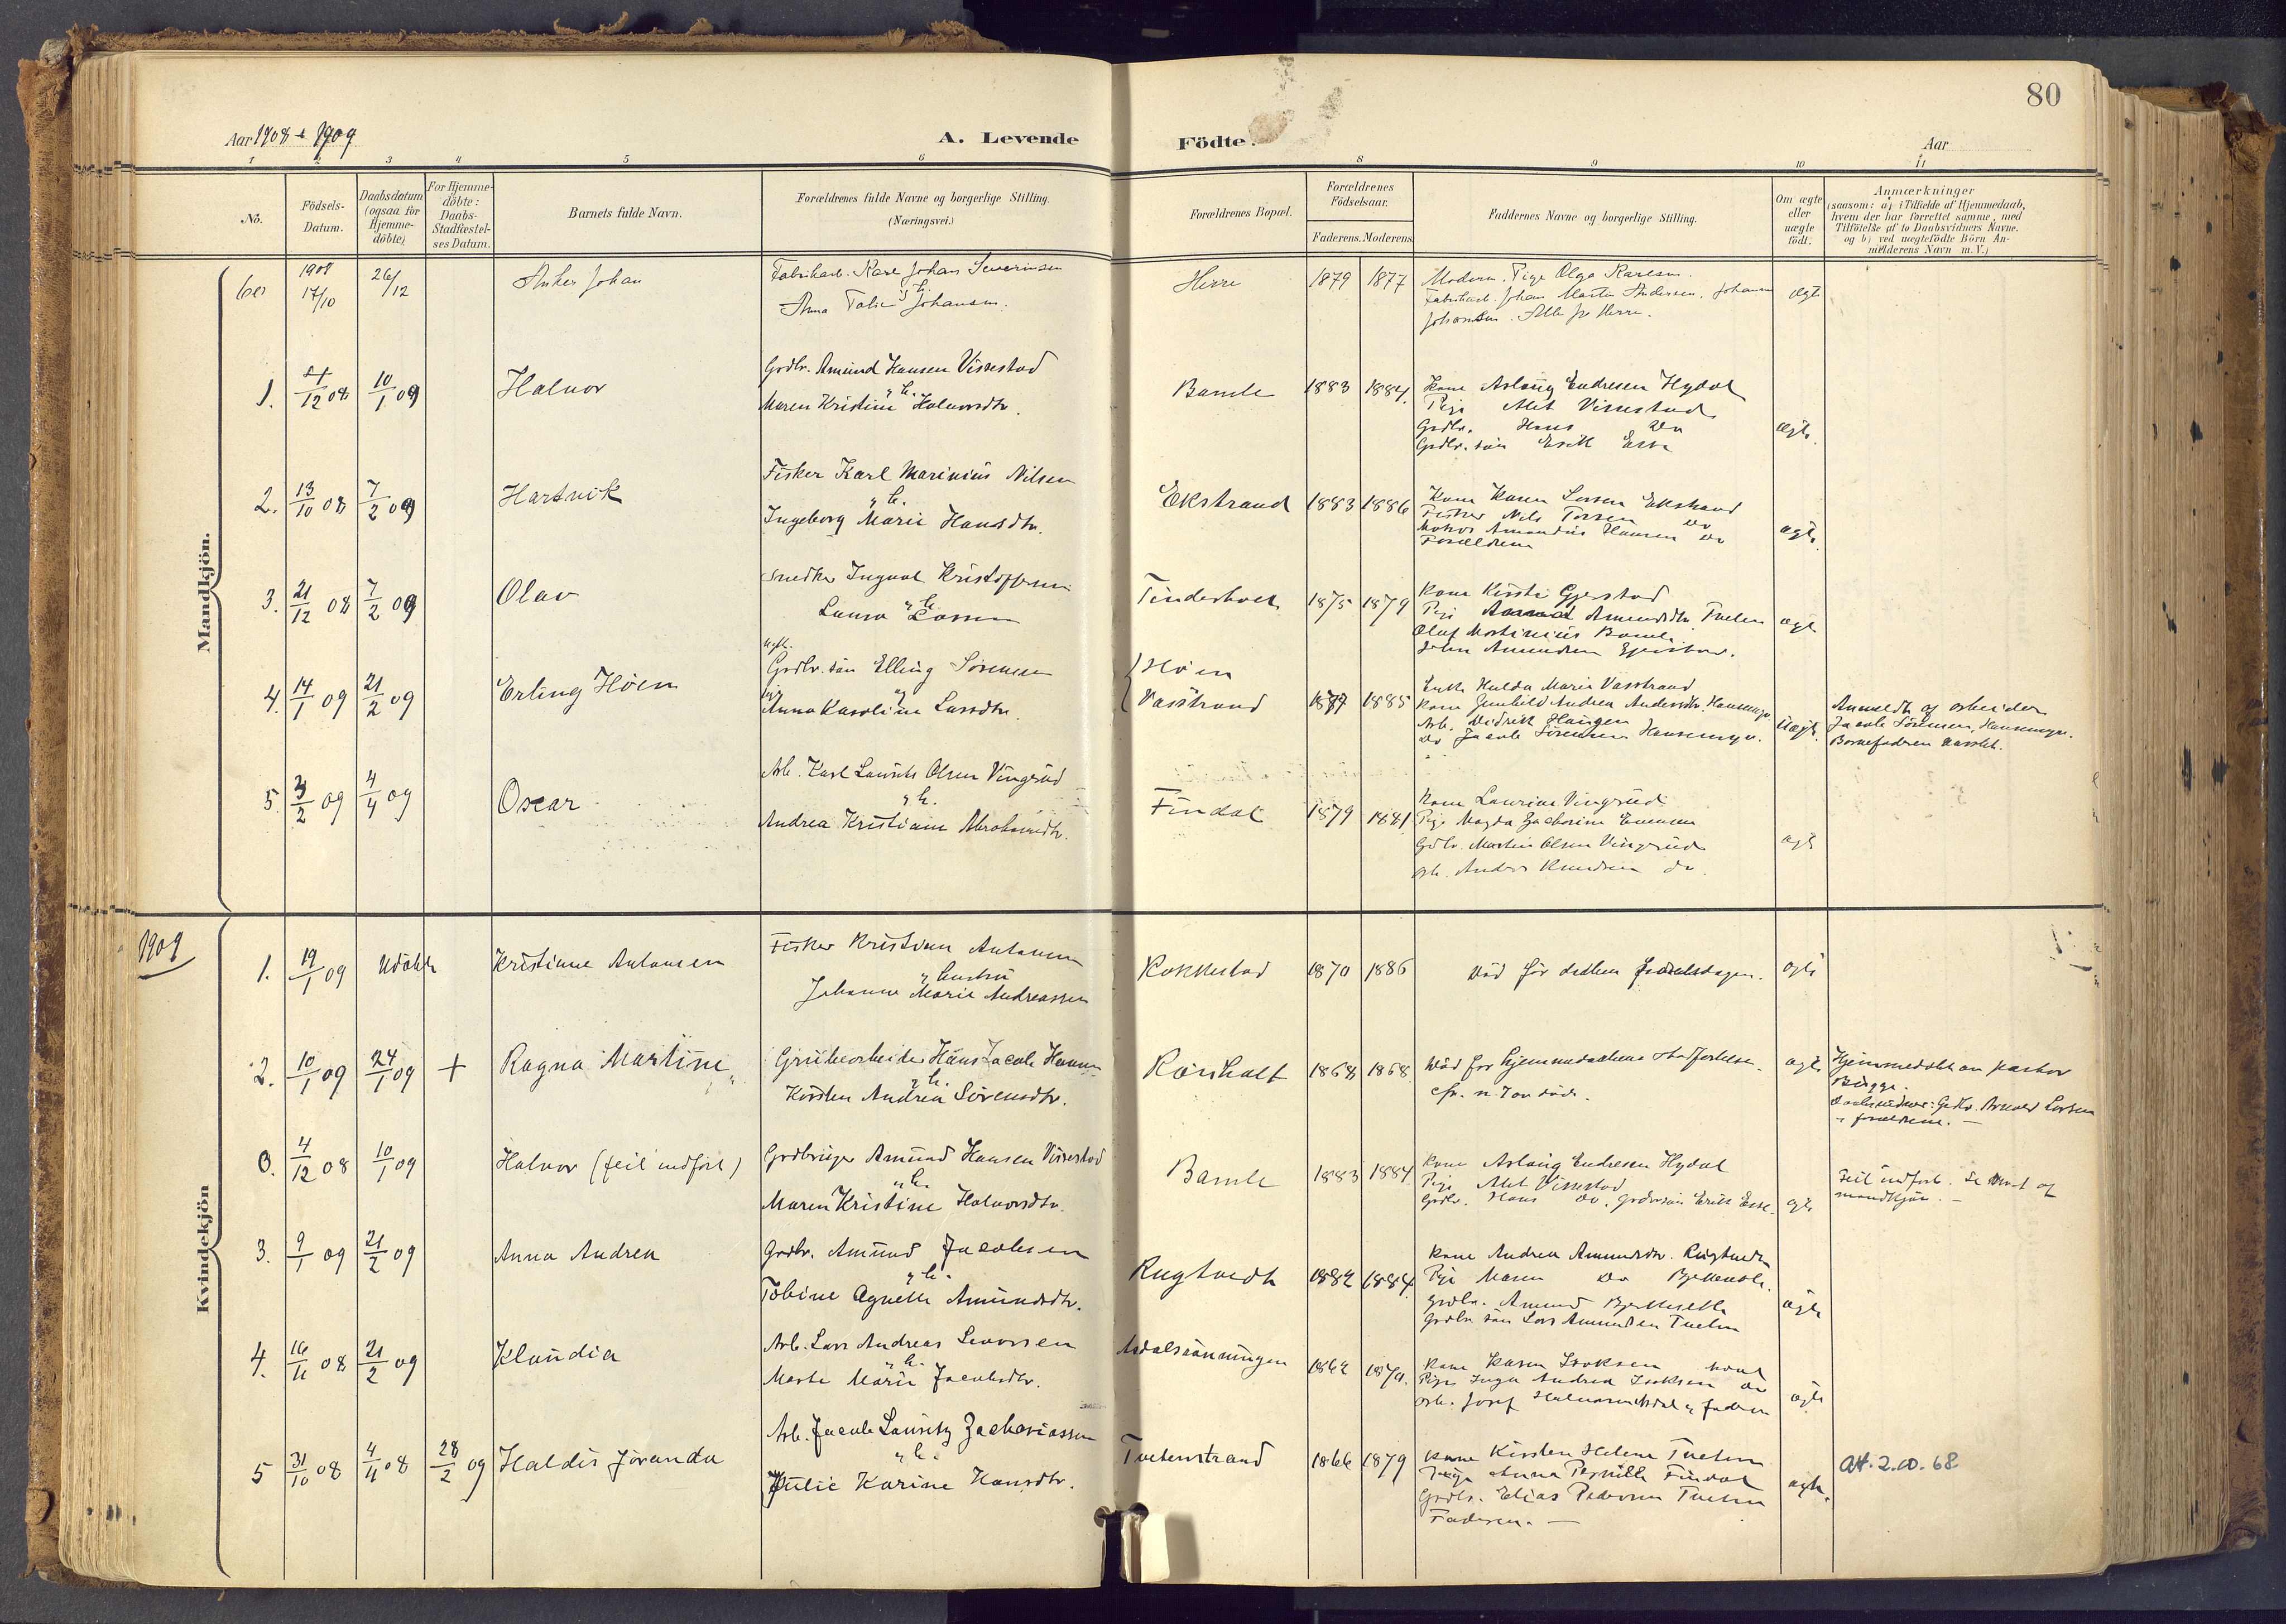 80
Aar 1908 & 1909
A. Levende
Födte.
Aar
1 2 3 4 5 6 8 9 10 11
No.
Födsels-
Datum.
Daabsdatum
(ogsaa for
Hjemme-
döbte)
For Hjemme-
döbte:
Daabs-
Stadfæstel-
ses Datum.
Barnets fulde Navn.
Forældrenes fulde Navne og borgerlige Stilling.
(Næringsvei.)
Forældrenes Bopæl.
Forældrenes
Födselsaar.
Faderens. Moderens.
Faddernes Navne og borgerlige Stilling.
Om ægte
eller
uægte
født.
Anmærkninger
(saasom: a) i Tilfælde af Hjemmedaab,
hvem der har forrettet samme, med
Tilföielse af to Daabsvidners Navne.
og b) ved uægtefödte Börn An-
melderens Navn m.V.)
Mandkjön.
1908
17/10
26/12
Anker Johan
Fabrikarb. Karl Johan Severinsen
Anna Johansen.
Herre
1879 1877
Modern. Pige Olga Karlsen.
Fabrikarb. Johan Martin Andersen, Johan
Johansen. Alle fr Herre.
ægte
1.
12 08
10/1 09
Halvor
Grdbr. Amund Hansen Vissestad
"h.
Maren Kristine Halvorsdtr.
Bamle
1883 1884.
Kone Aslaug Endresen Hydal
Pige Alet Vissestad
Grdbr. Hans Do
Grdbr. sön Erik
ægte.
2.
13/10 08
7/2 09
Hartvik
Fisker Karl Marinius Nilsen
"h.
Ingeborg Marie Hansdtr.
Ekstrand
1883 1886
Kone Karen Larsen Ekstrand
Fisker Nils Do
Amandus Hansen Do
Forældrene
ægte.
3.
21/12 08
7/2 09
Olav
Snedker Ingval Kristoffersen
"h.
Laura Larsen
Tinderholt
1875 1879
Kone Kirsti Gjerstad
Pige Amundsdtr. Tveten
Olaf Martinius Bamle.
John Amundsen
ægte
4.
14/1 09
21/2 09
Erling Höen
Ugft.
Grdbr. sön Elling Sörensen
og
Anna Karoline Larsdtr.
Höen
Vasstrand
1887 1885
Enke Hulda Marie Vasstrand
Kone Gunhild Andrea Andersdtr. Hansemyr.
Arb. Didrik Haugen
Do Jacob Sörensen Hansemyr.
Uægte.
Anmeldt af arbeider
Jacob Sörensen, Hansemyr.
Barnefaderen
5.
3/2 09
4/4 09
Oscar
Arb. Karl Laurits Olsen Vingrud
"h.
Andrea Kristiane Abrahamsdtr.
Findal
1879 1881
Kone Laurine Vingrud
Pige Magda Zachorine Evensen
Grdbr. Martin Olsen Vingrud
Arb. Anders Knudsen do.
ægte
Kvindekjön
1909
1.
19/1 09
Udöbt
Kristiane Antonsen
Fisker Kristian Antonsen
"hustru
Johanne Marie Andreassen
Rokkestad
1870 1886
Död för daaben födselsdagen.
ægte
2.
10/1 09
24/1 09
+
Ragna Martine
Grubearbeider Hans Jacob Hansen
"h.
Kirsten Andrea Sörensdtr.
Rönholt
1868 1868
Död for hjemmedaabens stadfestelse.
cfr. n 7 av döde.
ægte
Hjemmedöbt av pastor
Bugge.
Daabsvidner: Grdbr. Arnold Larsen
& forældrene. —
0.
4/12 08
10/1 09
Halvor (feil indfört)
Grdbruger Amund Hansen Vissestad
"h.
Maren Kristine Halvorsdtr.
Bamle
1883 1884
Kone Aslaug Endresen Hydal
Pige Alet Vissestad
Grdbr. Hans Do. Grdbrsön Erik
ægte
Feil indfört. Se No 1 af
mandkjön. —
3.
9/1 09
21/2 09
Anna Andrea
Grdbr. Amund Jacobsen
"h.
Tobine Agnette Amundsdtr.
Rugtvedt
1882 1884
Kone Andrea Amundsdtr. Rugtvedt
Pige Maren Do
Grdbr. Amund
Grdbr. sön Lars Amundsen Tveten
ægte
4.
16/11 08
21/2 09
Klaudia
Arb. Lars Andreas Larssen
"h.
Marte Marie Jacobsdtr.
Asdalsrönningen
1862 1870.
Kone Karen Isaksen
Pige Inga Andrea Isaksen do
Arb. Josef Halvorsen Asdal & faderen
ægte
5
31/10 08
4/11 08
28/2 09
Haldis Jöranda
Arb. Jacob Lauritz Zachariassen
"h.
Julie Karine Hansdtr.
Tvetenstrand
1866 1879
Kone Kirsten Helene Tveten
Pige Anna Pernille Findal
Grdbr. Elias Pedersen Tveten
Faderen. —
ægte.
Att. 2.10.68